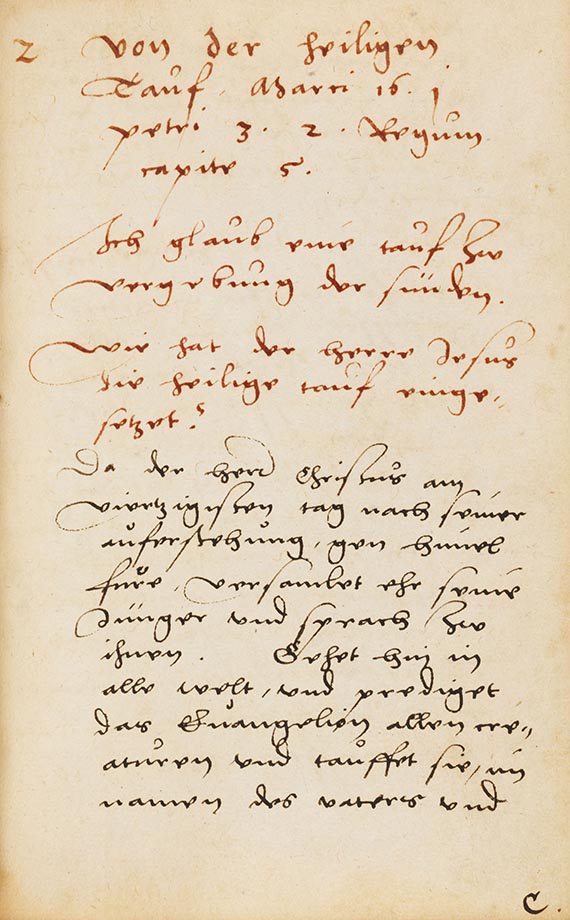 2 Von der heiligen
Tauf. Marci 16. 1
petri 3. 2. Regum
capite 5.
Ich glaub eine tauf zw
vergebung der sünden.
Wie hat der herre Jesus
die heilige tauf einge-
setzet?
Da der herr Christus am
viertzigisten tag nach seiner
auferstehung, gen himel
fure, versamlet ehr seine
Jünger und sprach zw
ihnen. Gehet hin in
alle welt, und prediget
das Euangelion allen cre-
aturen und tauffet sie, im
namen des vaters und
C.